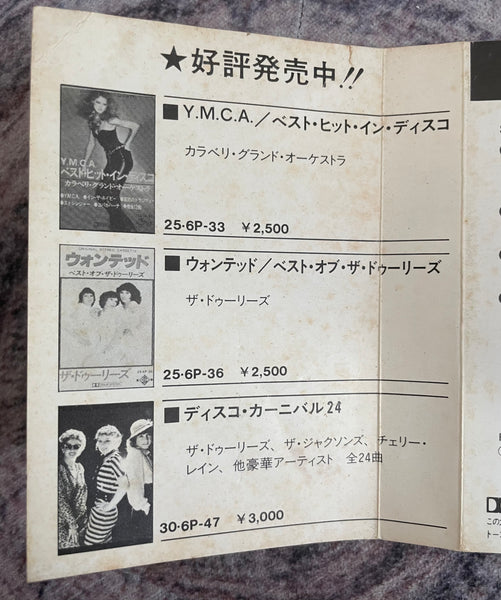 ★好評発売中!!
■Y.M.C.A./ベスト・ヒット・イン・ディスコ
カラベリ・グランド・オーケストラ
25・6P-33 ¥2,500
Y.M.C.A.
ベスト・ヒット・イン・ディスコ
カラベリ・グランド・オーケストラ
■ウォンテッド/ベスト・オブ・ザ・ドゥーリーズ
ザ・ドゥーリーズ
25・6P-36 ¥2,500
ウォンテッド
ベスト・オブ・ザ・ドゥーリーズ
ザ・ドゥーリーズ
■ディスコ・カーニバル24
ザ・ドゥーリーズ、ザ・ジャクソンズ、チェリー・
レイン、他豪華アーティスト 全24曲
30・6P-47 ¥3,000